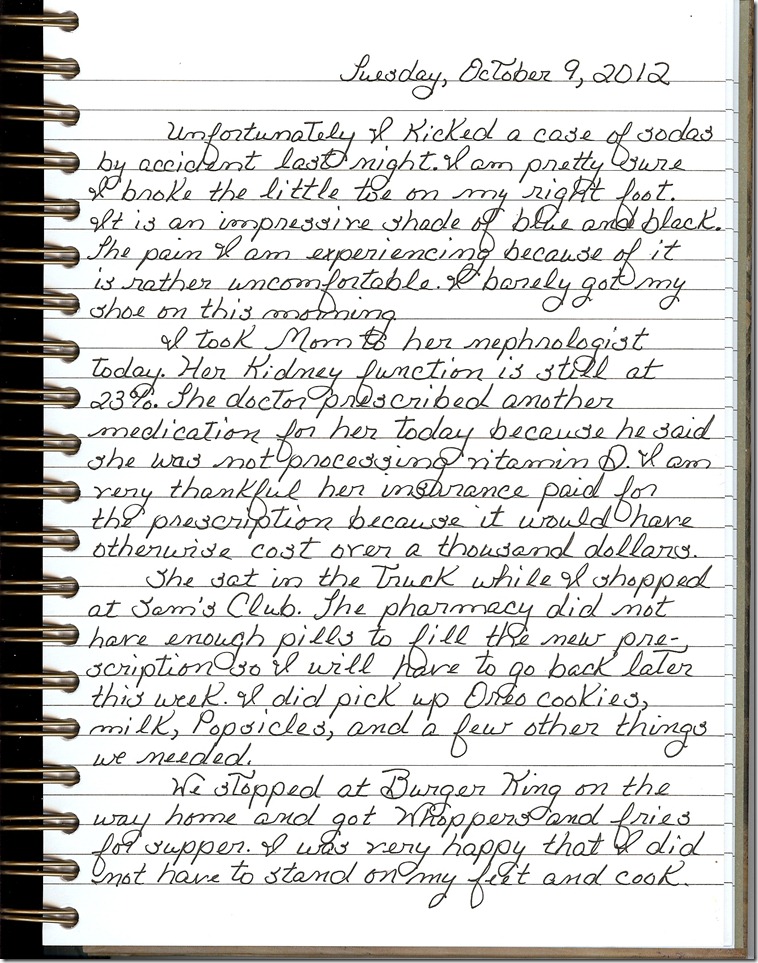 Tuesday, October 9, 2012
Unfortunately I kicked a case of sodas
by accident last night. I am pretty sure
I broke the little toe on my right foot.
It is an impressive shade of blue and black.
The pain I am experiencing because of it
is rather uncomfortable. I barely got my
shoe on this morning
I took Mom to her nephrologist
today. Her kidney function is still at
23%. The doctor prescribed another
medication for her today because he said
she was not processing vitamin D. I am
very thankful her insurance paid for
the prescription because it would have
otherwise cost over a thousand dollars.
She sat in the truck while I shopped
at Sam's Club. The pharmacy did not
have enough pills to fill the new pre-
scription so I will have to go back later
this week. I did pick up Oreo cookies,
milk, Popsicles, and a few other things
we needed.
We stopped at Burger King on the
way home and got Whoppers and fries
for supper. I was very happy that I did
not have to stand on my feet and cook.